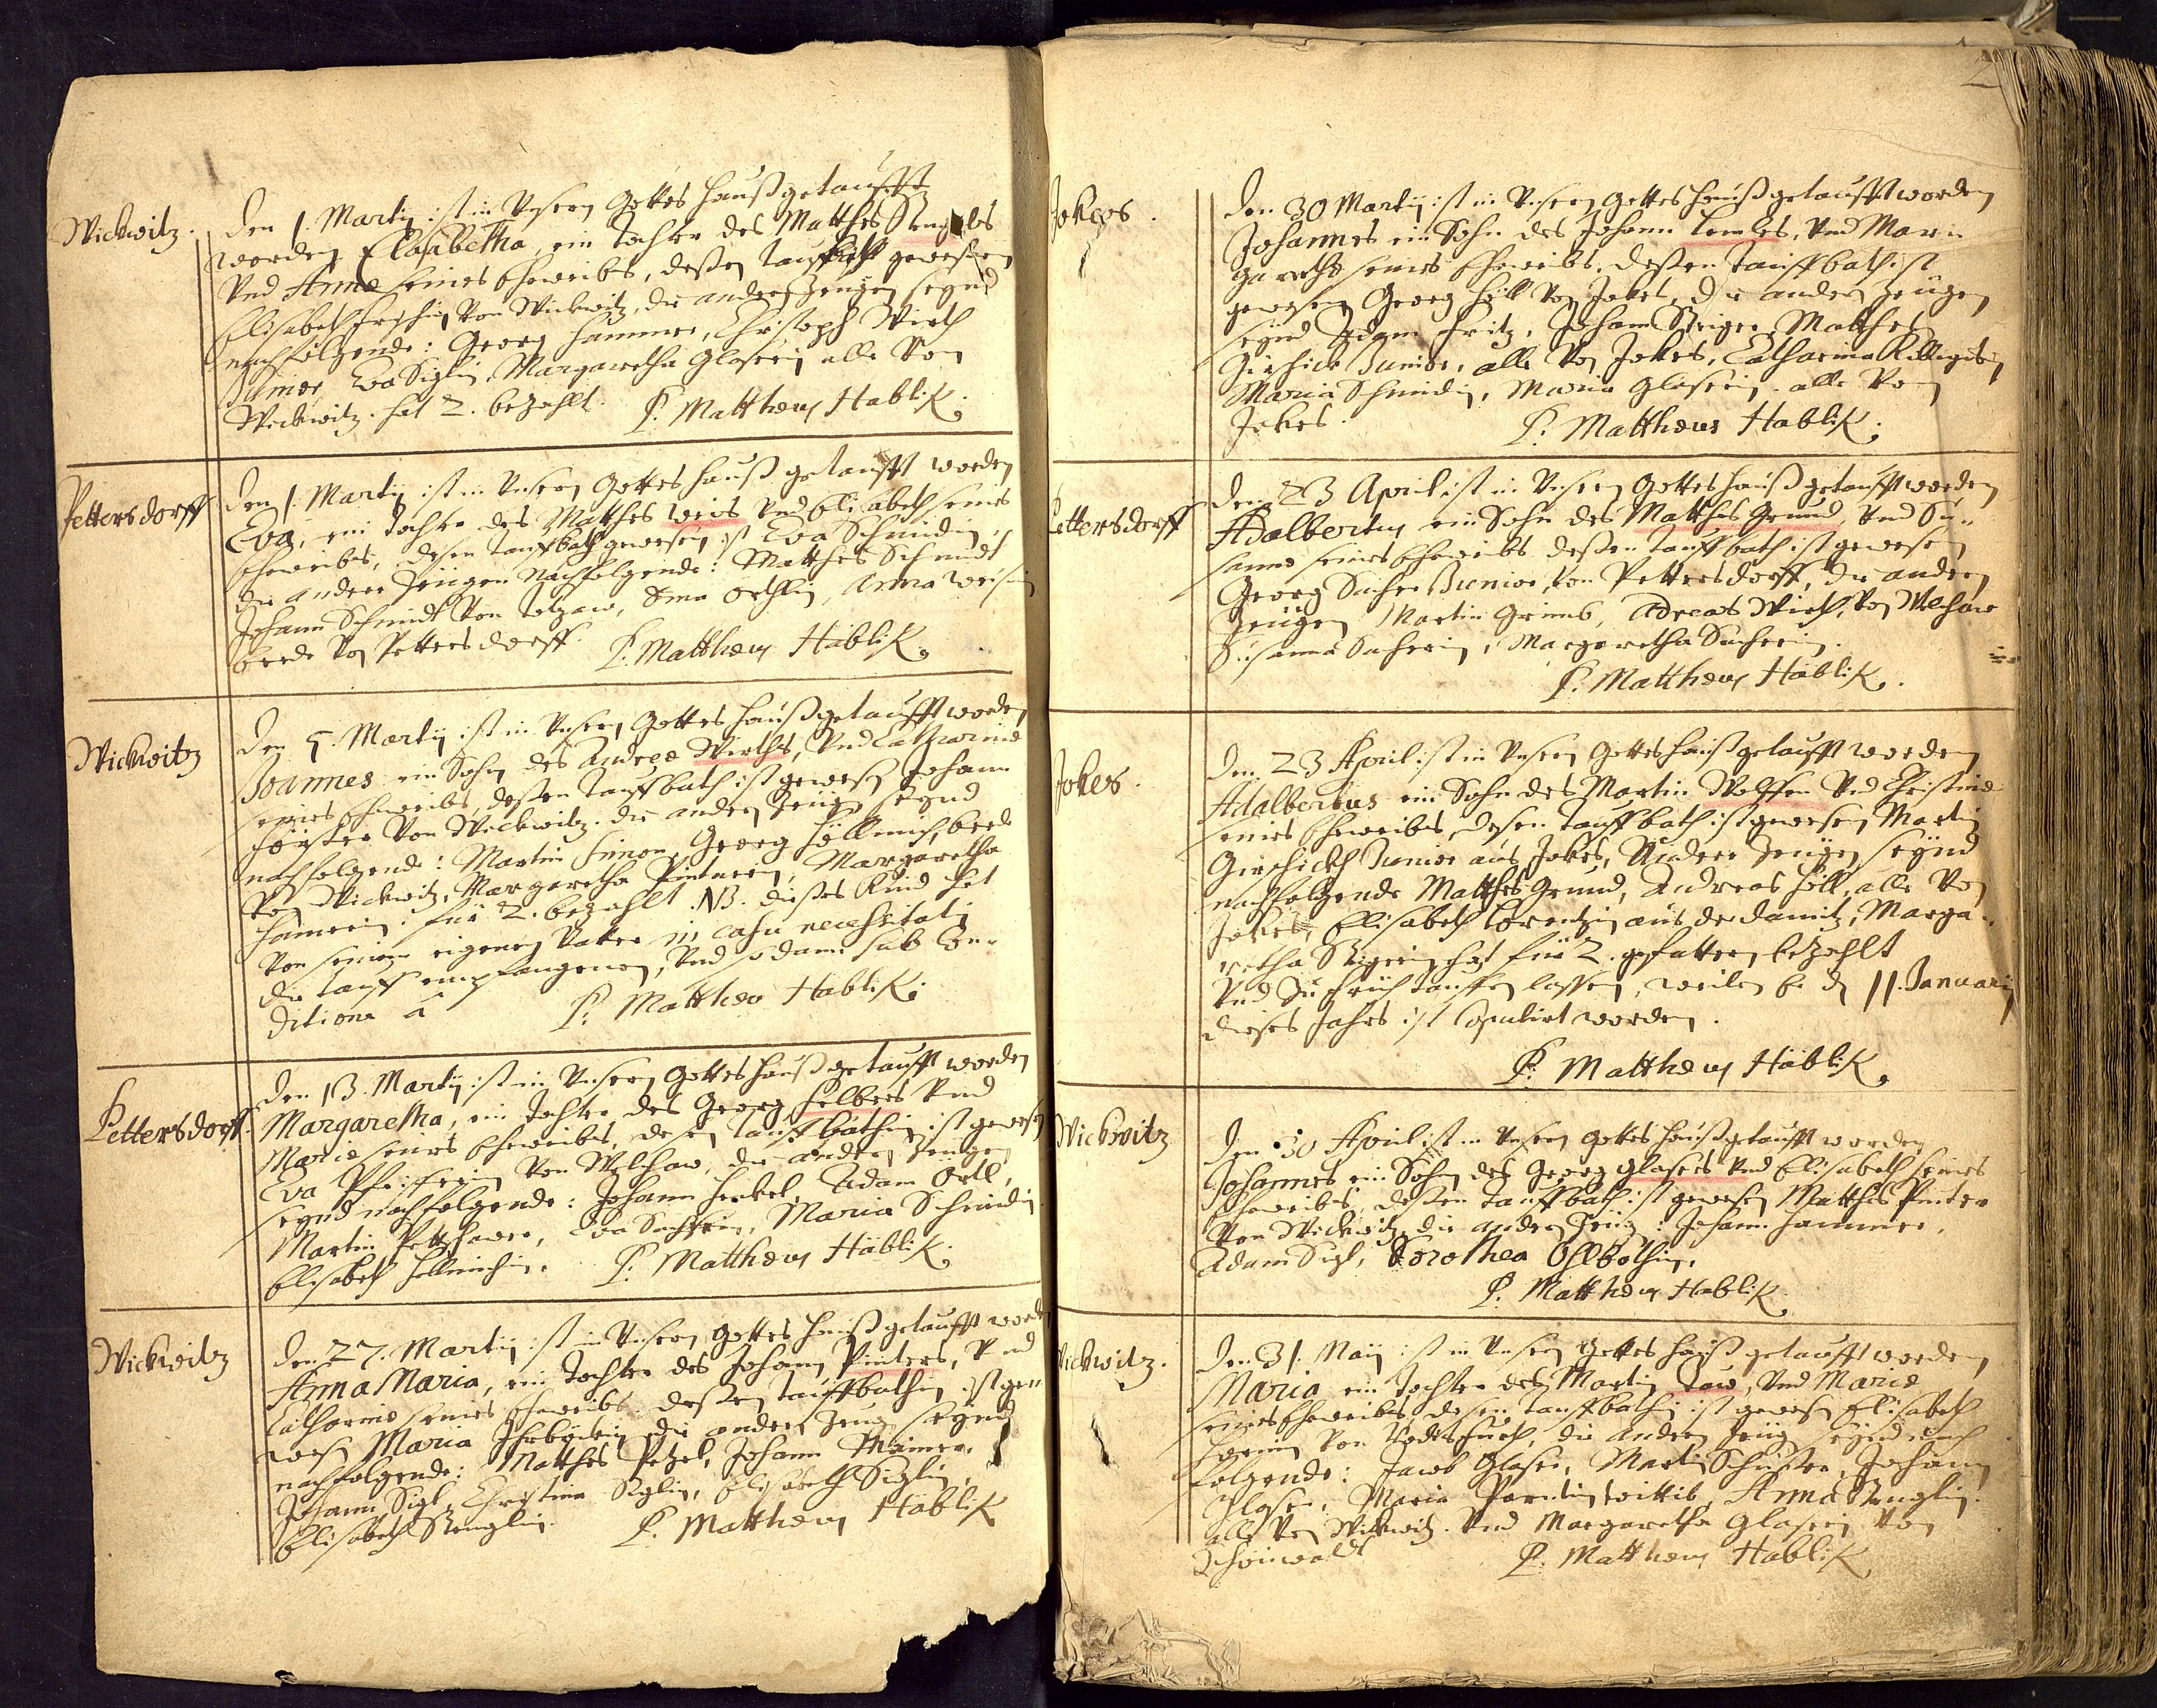 Wickwitz.
Den 1. Martij ist in Unsern Gottes Hauß getaufft
worden Elisabetha, ein Tochter des Matthes Stengles
Und Annæ seines Eheweibs, deßen gewesen
Elisabeth von Wickwitz, die andern Zeugen seynd
nachfolgende: Georg Hammer, Christoph Wirth
Junior, Eva Siglin, Margaretha Glaserin alle Von
Wickwitz. hat 2. bezahlt. P. Matthæus Hablik.
Pettersdorff
Den 1. Martij ist in Unsern Gottes Hauß getaufft worden
Eva, ein Tochter des Matthes Weis Und Elisabeth seines
Eheweibs, desen Tauffbath gewesen ist Eva Schmidin,
die andere Zeügen Nachfolgende: Matthes Schmidt
Johann Schmidt Von , Orthlin, Anna
beede Von Pettersdorff. P. Matthæus Hablik.
Wickwitz
Den 5. Martij ist in Unsern Gottes Hauß getaufft worden
Joannes ein Sohn des Andreæ Wirths, Und Catharinæ
seines Eheweibs, deßen Tauffbath ist gewesen Johann
Förster Von Wickwitz. die andern Zeugen seynd
nachfolgende: Martin Simon, Georg , beede
Von Wickwitz, Margaretha Pinterin, Margaretha
Hamerin. für 2. bezahlt. NB. dieses Kind hat
Von seinem eigenen Vatter in casu necessitatis
die Tauff empfangenen, Und so dann sub Con-
ditione à P. Matthæo Hablik.
Pettersdorff.
Den 13. Martij ist in Unsern Gottes Hauß getaufft worden
Margaretha, ein Tochter des Georg Helbers Und
Mariæ seines Eheweibs, desen Tauffbathin ist gewesen
Eva Pfeifferin Von Welchaw, die andern Zeugen
seynd nachfolgende: Johann Henkel, Adam Ortl,
Martin , Eva , Maria Schmidin
Elisabeth . P. Matthæus Hablik.
Wickwitz
Den 27. Martij ist in Unsern Gottes Hauß getaufft worden
Anna Maria, ein Tochter des Johann Pinters, Und
Catharinæ seines Eheweibs. deßen Tauffbathin ist ge
wesen Maria die andern Zeugen seynd
nachfolgende: Matthes Petzel, Johann
Johann Sigl, Christina Siglin, Elisabeth Siglin,
Elisabeth Stenglin. P. Matthæus Hablik
2
Jokes.
Den 30 Martij ist in Unsern Gottes Hauß getaufft worden
Johannes ein Sohn des Johann , Und Mar
garethæ seines Eheweibs. deßen Tauffbath ist
gewesen Georg Höll Von Jokes, die andern Zeügen
seynd Adam Fritz, Johann Steiger Matthes
Girschick Junior, alle Von Jokes, Catharina
Maria Schmidin, Maria Glaserin. alle Von
Jokes. P. Matthæus Hablik.
Pettersdorff
Den 23 April ist in Unsern Gottes Hauß getaufft worden
Adalbertus ein Sohn des Matthes Grund, Und Su-
sannæ seines Eheweibs deßen Tauffbath ist gewesen
Georg Sacher Junior, Von Pettersdorff, die andern
Zeügen Martin Grimb, Andreas Wirth, Von Welchaw
Susanna Sacherin, Margaretha Sacherin.
P. Matthæus Hablik.
Jokes.
Den 23 April ist in Unsern Gottes Hauß getaufft worden
Adalbertus ein Sohn des Martin Wolffen Und Christinæ
seines Eheweibes, desen Tauffbath ist gewesen Martin
Girschickh Junior aus Jokes, Andere Zeugen seynd
nachfolgende Matthes Grund, Andreas Höll, alle Von
Jokes, Elisabeth Lorentzin aus der Damitz, Marga-
retha Steigerin, hat für 2. gefattern bezahlt
Und Zu früh tauffen lassen, weilen d 11. Januarij
dieses Jahrs ist Copulirt worden.
P. Matthæus Hablik.
Wickwitz
Den 30 April ist in Unsern Gottes Hauß getaufft worden
Johannes ein Sohn des Georg Glasers Und Elisabeth seines
Eheweibes, deßen Tauffbath ist gewesen Matthes Pinter
Von Wickwitz, die andern Zeüg: Johann Hammer,
Adam Sigl, Dorothea .
P. Matthæus Hablik.
Wickwitz.
Den 31. Maij ist in Unsern Gottes Hauß getaufft worden
Maria ein Tochter des Martin , Und Mariæ
seines Eheweibes, desen Tauffbathin ist gewesen Elisabeth
Von , die andern Zeüg seynd nach
folgende: Jacob Glaser, Martin Schuster, Johann
Glaser, Maria wittib, Anna Stenglin.
alle Von Wickwitz. Und Margaretha Glaserin Von
Schönwaldt P. Matthæus Hablik